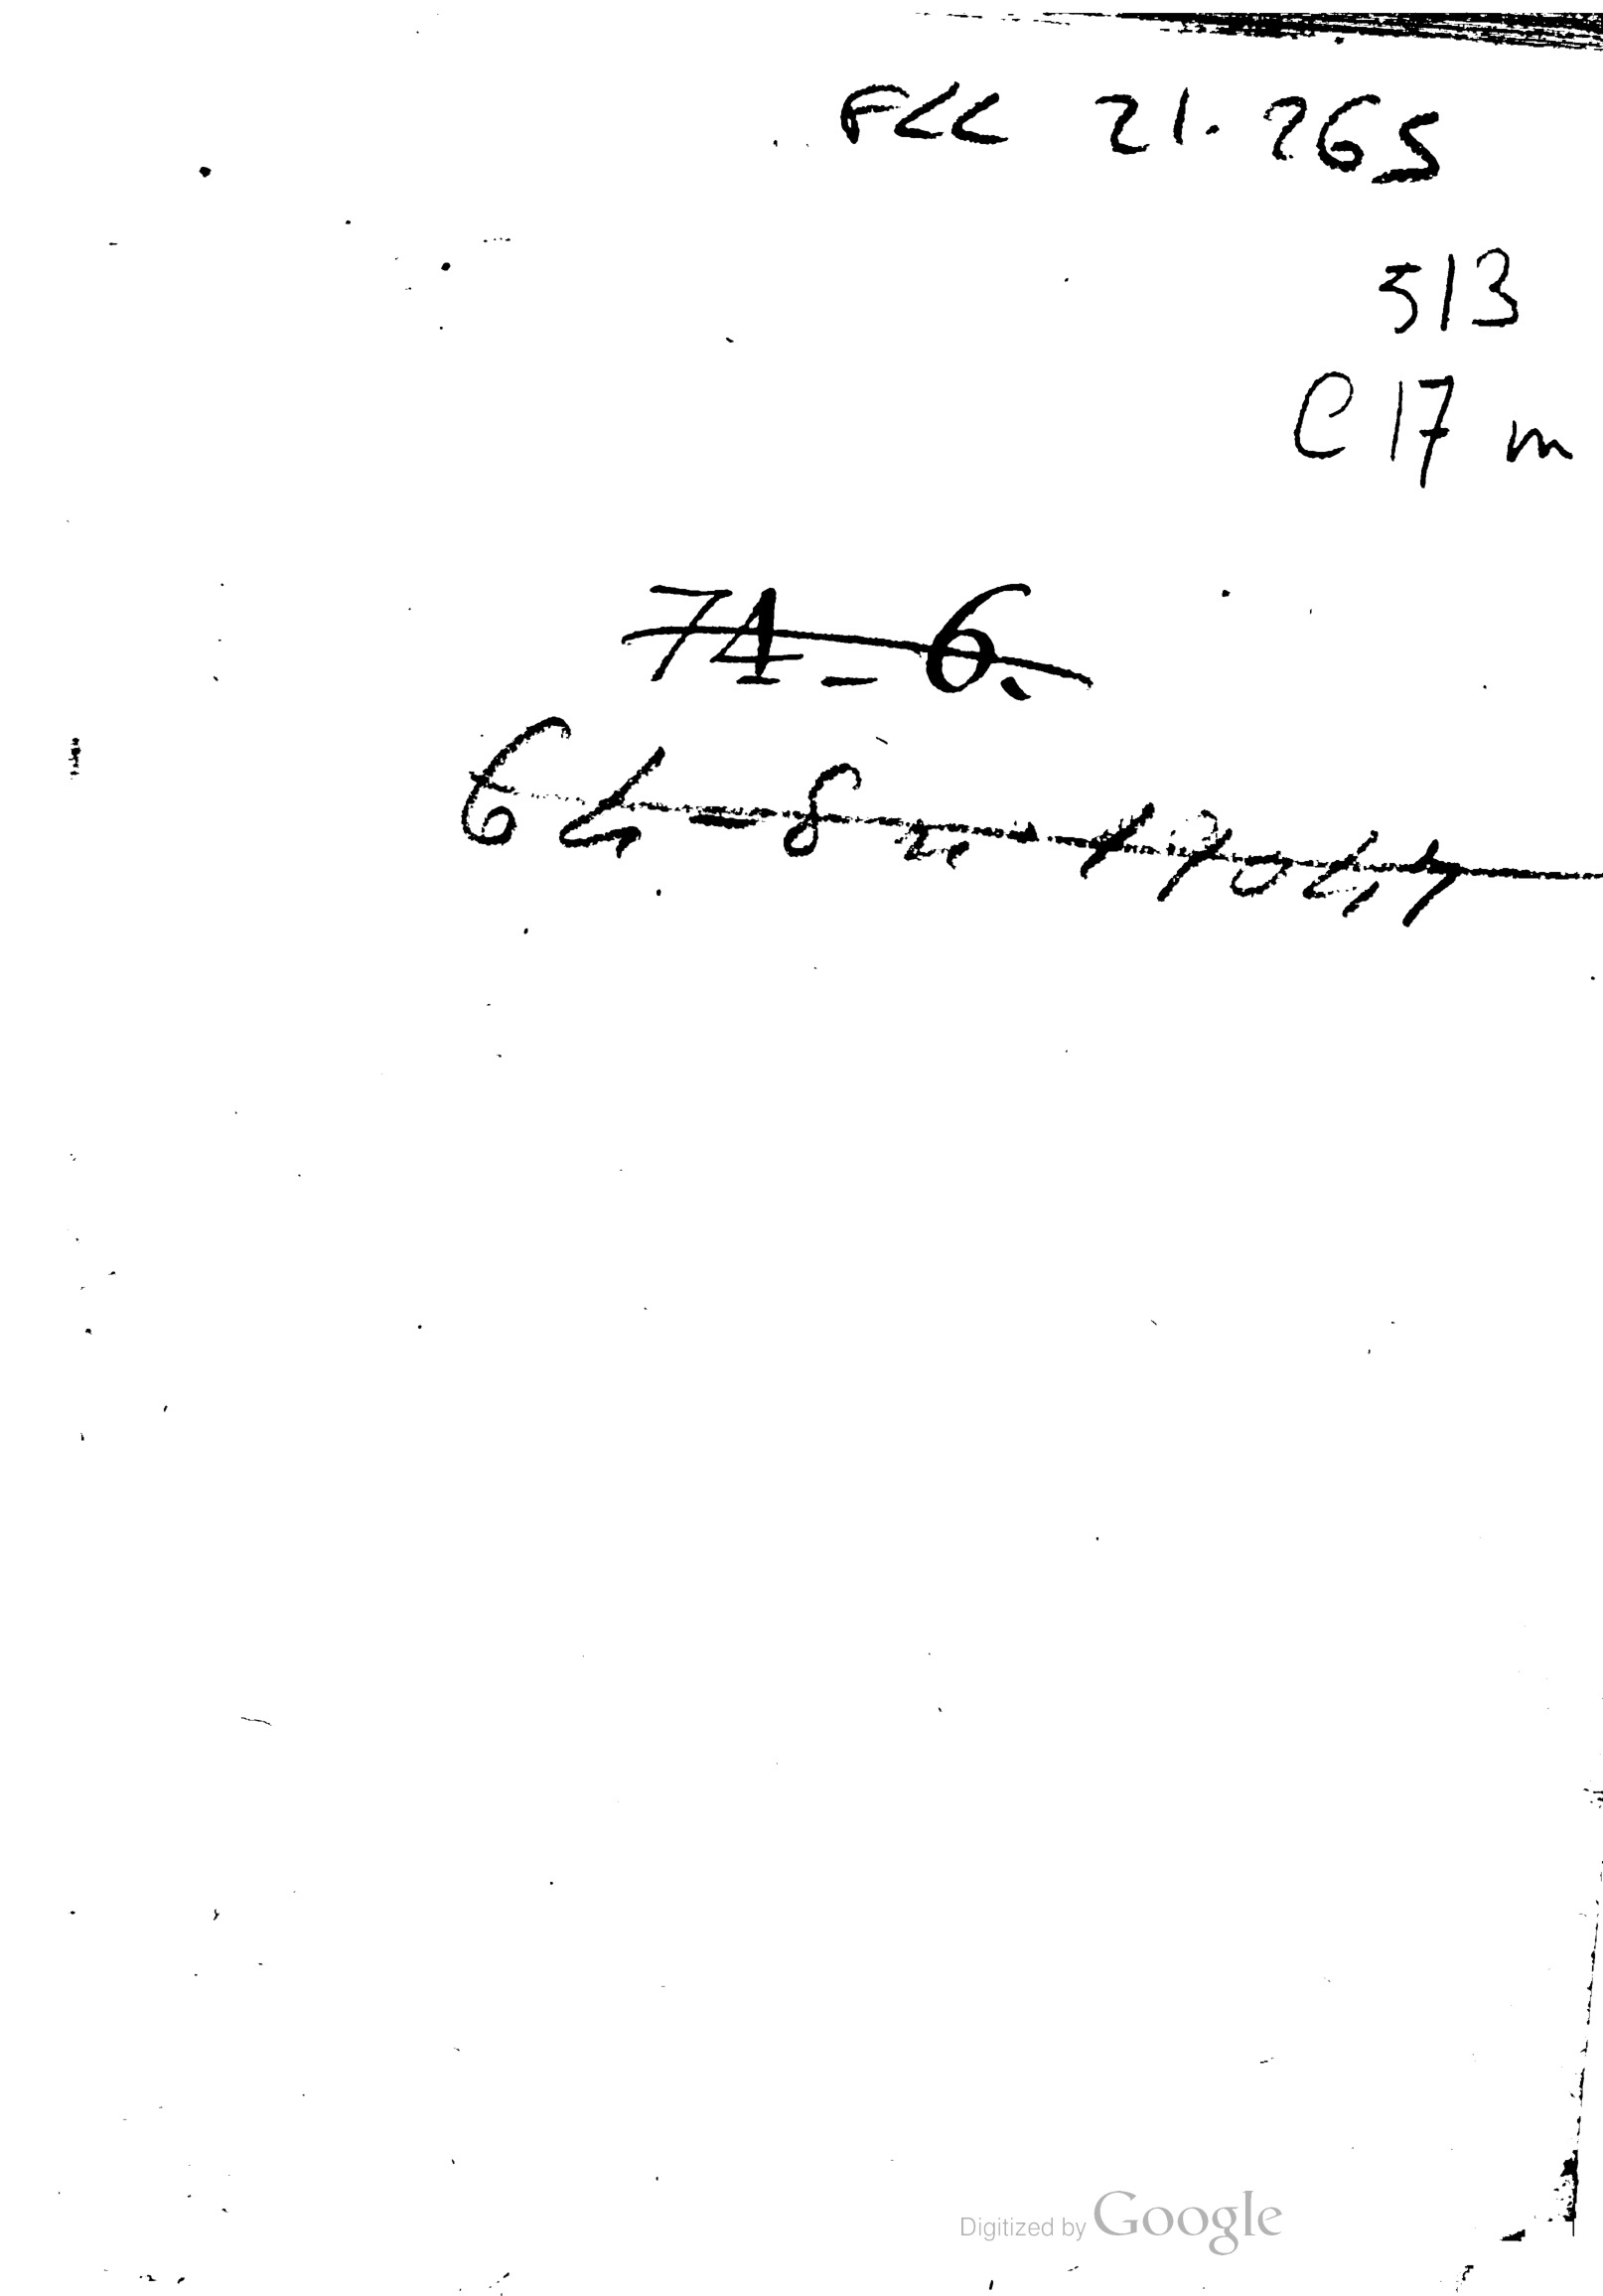 FLL 21.265
513
C17 m
74-6.
Digitized by Google